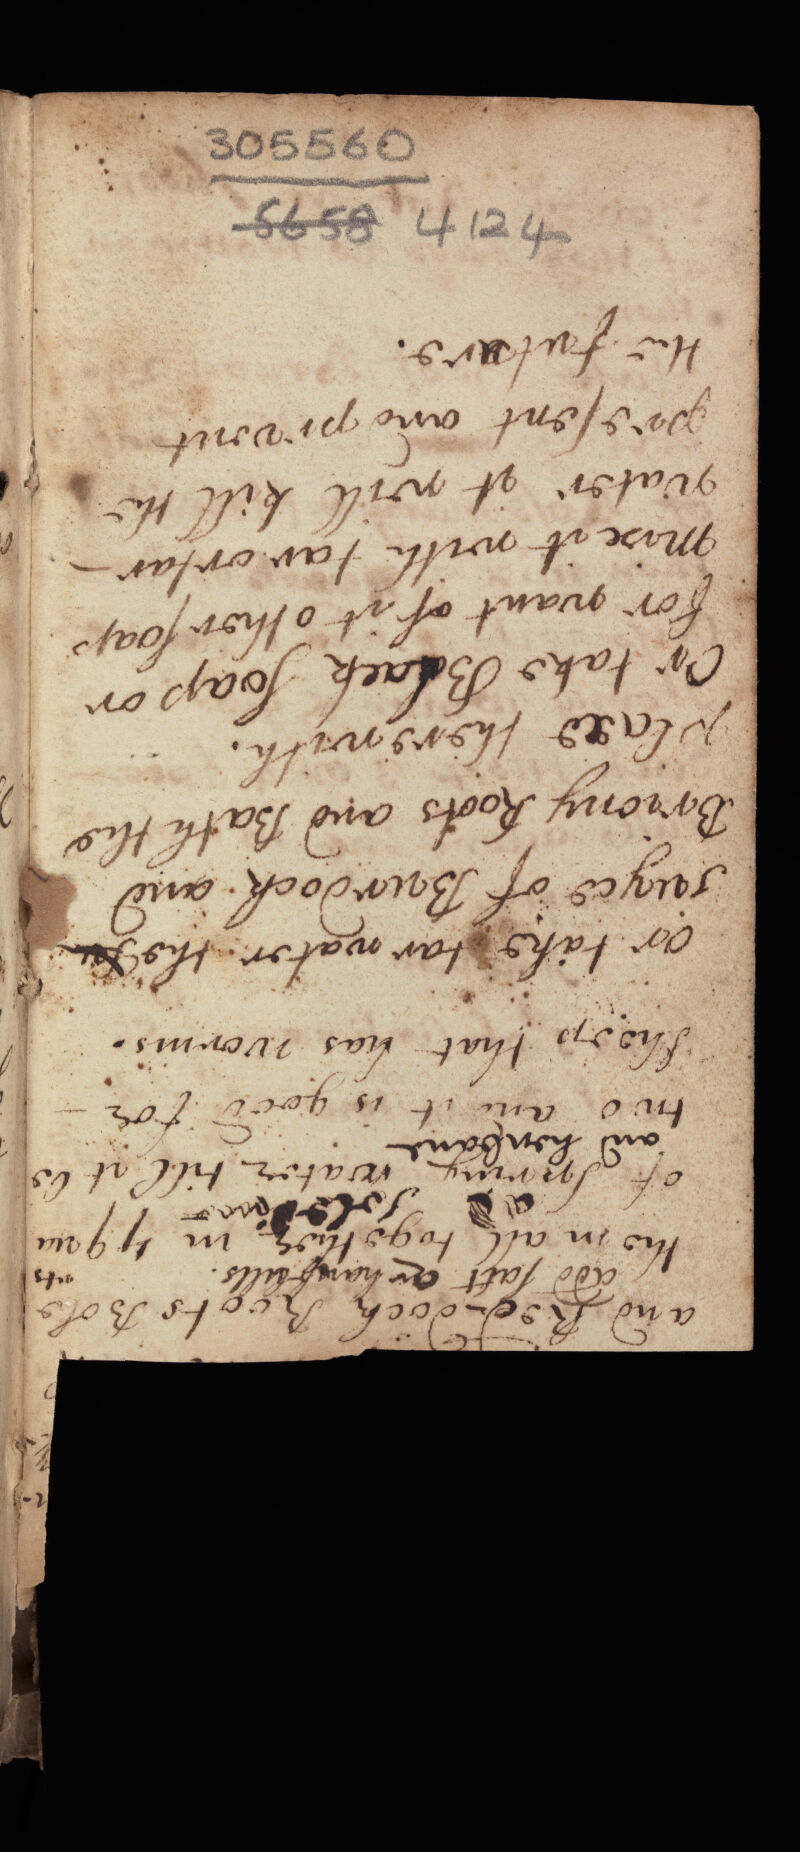 305560
5658 4124
and Red dock Roots Bole
add salt a hanfulls
them all together in 4 quarts
of spring water till it be
and henbane
two and it is good for
sheep that has worms.
or take tar water the
juyce of Burdock and
Briony Roots and Bath the
place therewith.
Or take Black soap or
for want of it other soap
Mix it with tar or tar
water it will kill the
present and prvent
the future.